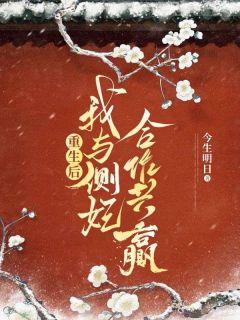 重生后
我与侧妃
合作共赢
今生明日著